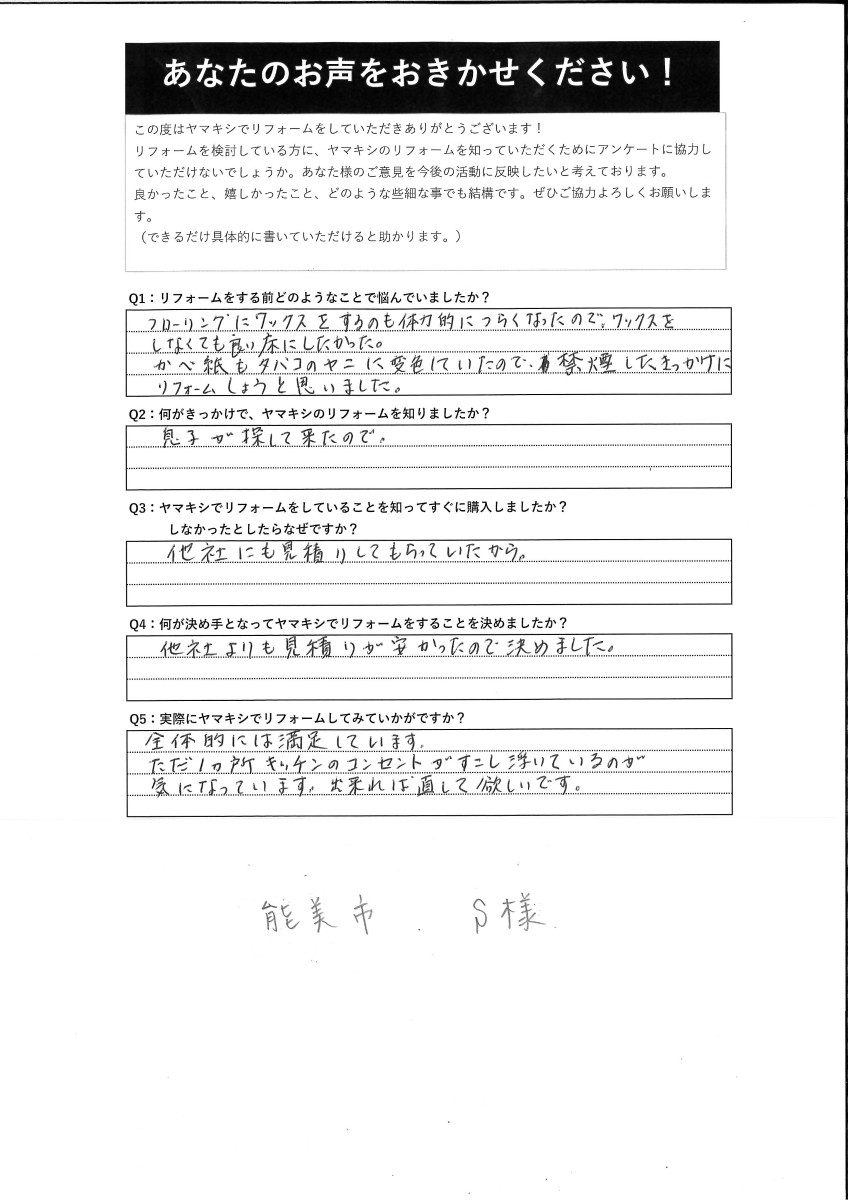 あなたのお声をおきかせください！
この度はヤマキシでリフォームをしていただきありがとうございます！
リフォームを検討している方に、ヤマキシのリフォームを知っていただくためにアンケートに協力し
ていただけないでしょうか。あなた様のご意見を今後の活動に反映したいと考えております。
良かったこと、嬉しかったこと、どのような些細な事でも結構です。ぜひご協力よろしくお願いしま
す。
（できるだけ具体的に書いていただけると助かります。）
Q1：リフォームをする前どのようなことで悩んでいましたか？
フローリングにワックスをするのも体力的につらくなったので、ワックスを
しなくても良い床にしたかった。
かべ紙もタバコのヤニに変色していたので、禁煙したきっかけに
リフォームしようと思いました。
Q2：何がきっかけで、ヤマキシのリフォームを知りましたか？
息子が探して来たので。
Q3：ヤマキシでリフォームをしていることを知ってすぐに購入しましたか？
しなかったとしたらなぜですか？
他社にも見積りしてもらっていたから。
Q4：何が決め手となってヤマキシでリフォームをすることを決めましたか？
他社よりも見積りが安かったので決めました。
Q5：実際にヤマキシでリフォームしてみていかがですか？
全体的には満足しています。
ただ1カ所キッチンのコンセントがすこし浮いているのが
気になっています。出来れば直して欲しいです。
能美市 S様